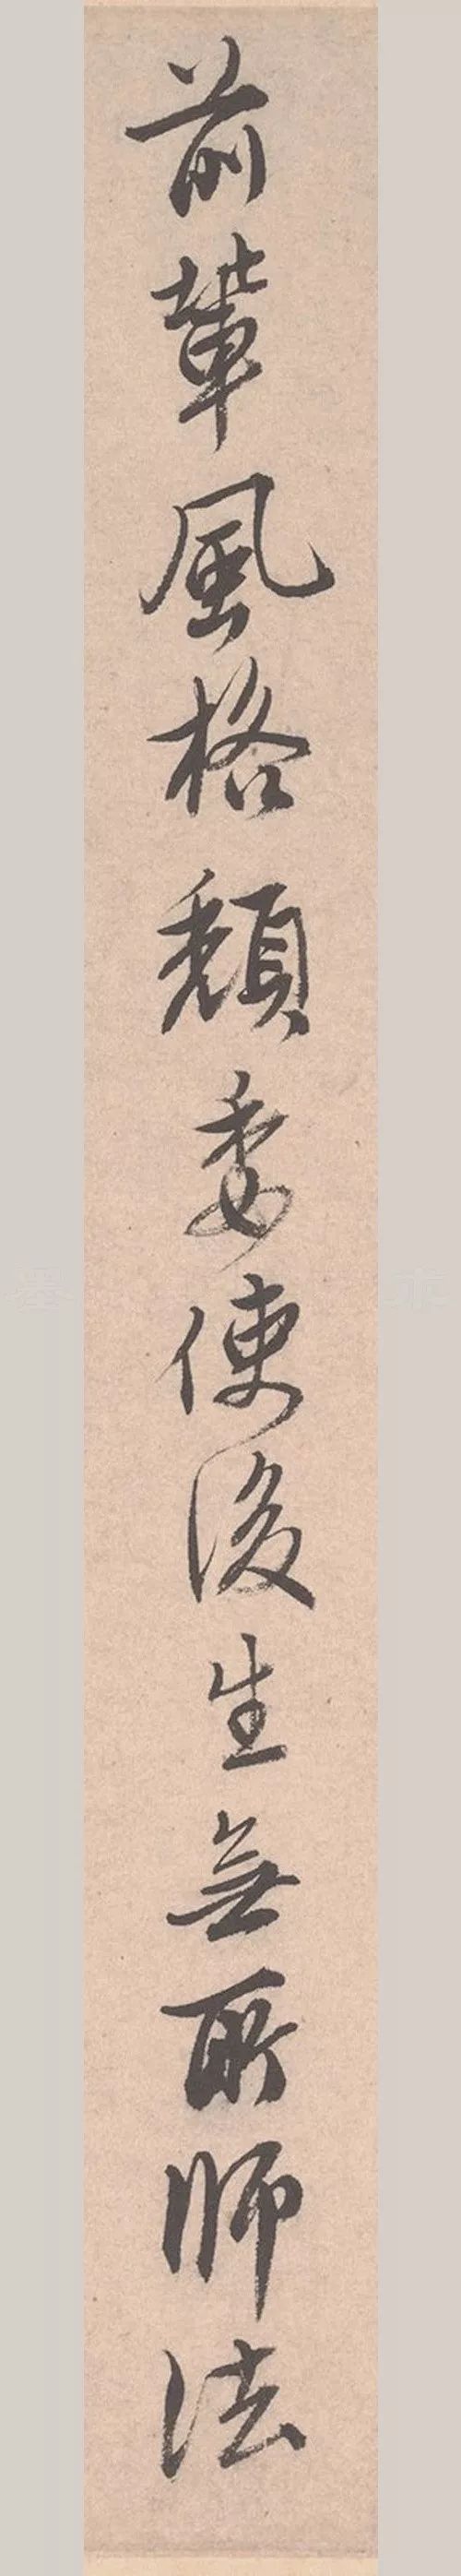 前輩風格頹委使後生無所師法